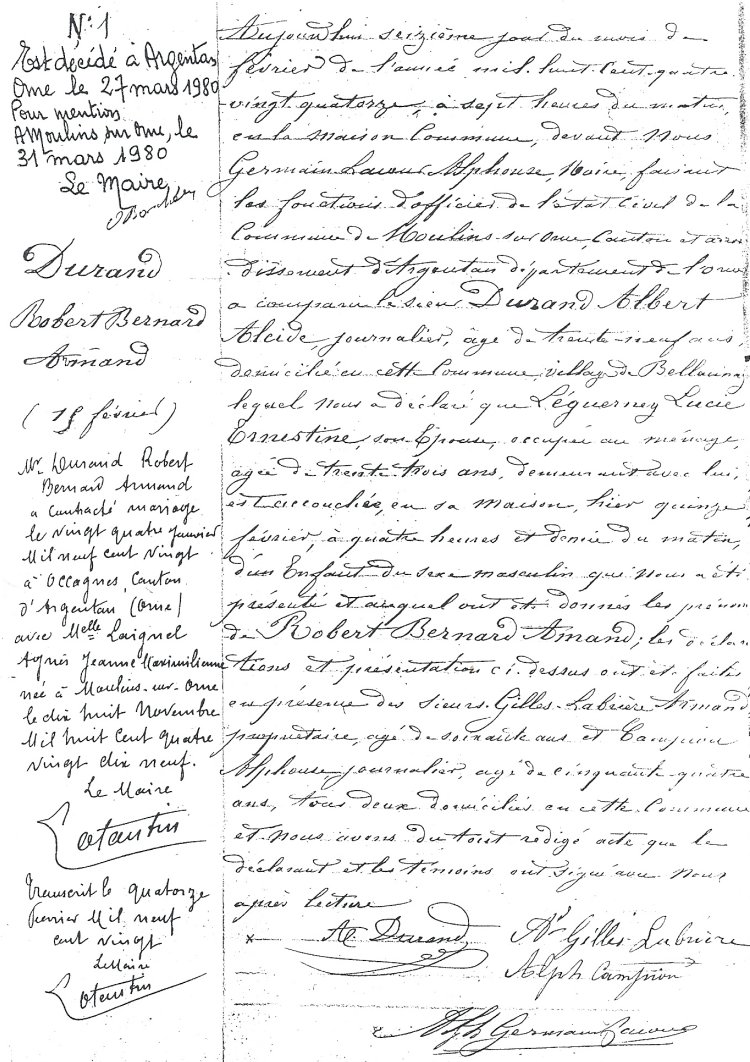 N° 1
Est décédé à Argentan
Orne le 27 mars 1980
Pour mention
A Moulins sur Orne, le
31 mars 1980
Le Maire
Durand
Robert Bernard
Armand
(15 février)
Mr Durand Robert
Bernard Armand
a contracté mariage
le vingt quatre janvier
Mil neuf cent vingt
à Occagnes, Canton
d'Argentan (Orne)
avec Melle Laignel
Agnès Jeanne Maximilienne
née à Moulins-sur-Orne
le dix huit Novembre
Mil huit Cent quatre
vingt dix neuf.
Le Maire
Cotantin
Transcrit le quatorze
février Mil neuf
cent vingt
Le Maire
Cotantin
Aujourd'hui seizième jour du mois de
février de l'année mil huit Cent quatre-
vingt quatorze, à sept heures du matin,
en la maison Commune, devant Nous
Germain Lacour Alphonse, Maire, faisant
les fonctions d'officier de l'état Civil de la
Commune de Moulins sur Orne, Canton et arron-
dissement d'Argentan département de l'orne
a comparu le sieur Durand Albert
Alcide journalier, âgé de trente-neuf ans
domicilié en cette Commune, village de
lequel Nous a déclaré que Leguerney Lucie
Ernestine, son Epouse, occupée au ménage,
agée de trente trois ans, demeurant avec lui,
est accouchée, en sa maison, hier quinze
février, à quatre heures et demie du matin,
d'un Enfant du sexe masculin qui Nous a été
présenté et auquel ont été donnés les prénoms
de Robert Bernard Amand; les déclara-
tions et présentation ci-dessus ont été faites
en présence des sieurs Gilles-Labrière Armand
propriétaire, agé de soixante ans et Campion
Alphonse journalier, agé de cinquante-quatre
ans, tous deux domiciliés en cette Commune
et Nous avons du tout rédigé acte que le
déclarant et les témoins ont signé avec Nous
après lecture
Ae Durand
Ad Gilles Labrière
Alph Campion
Alph Germain Lacour